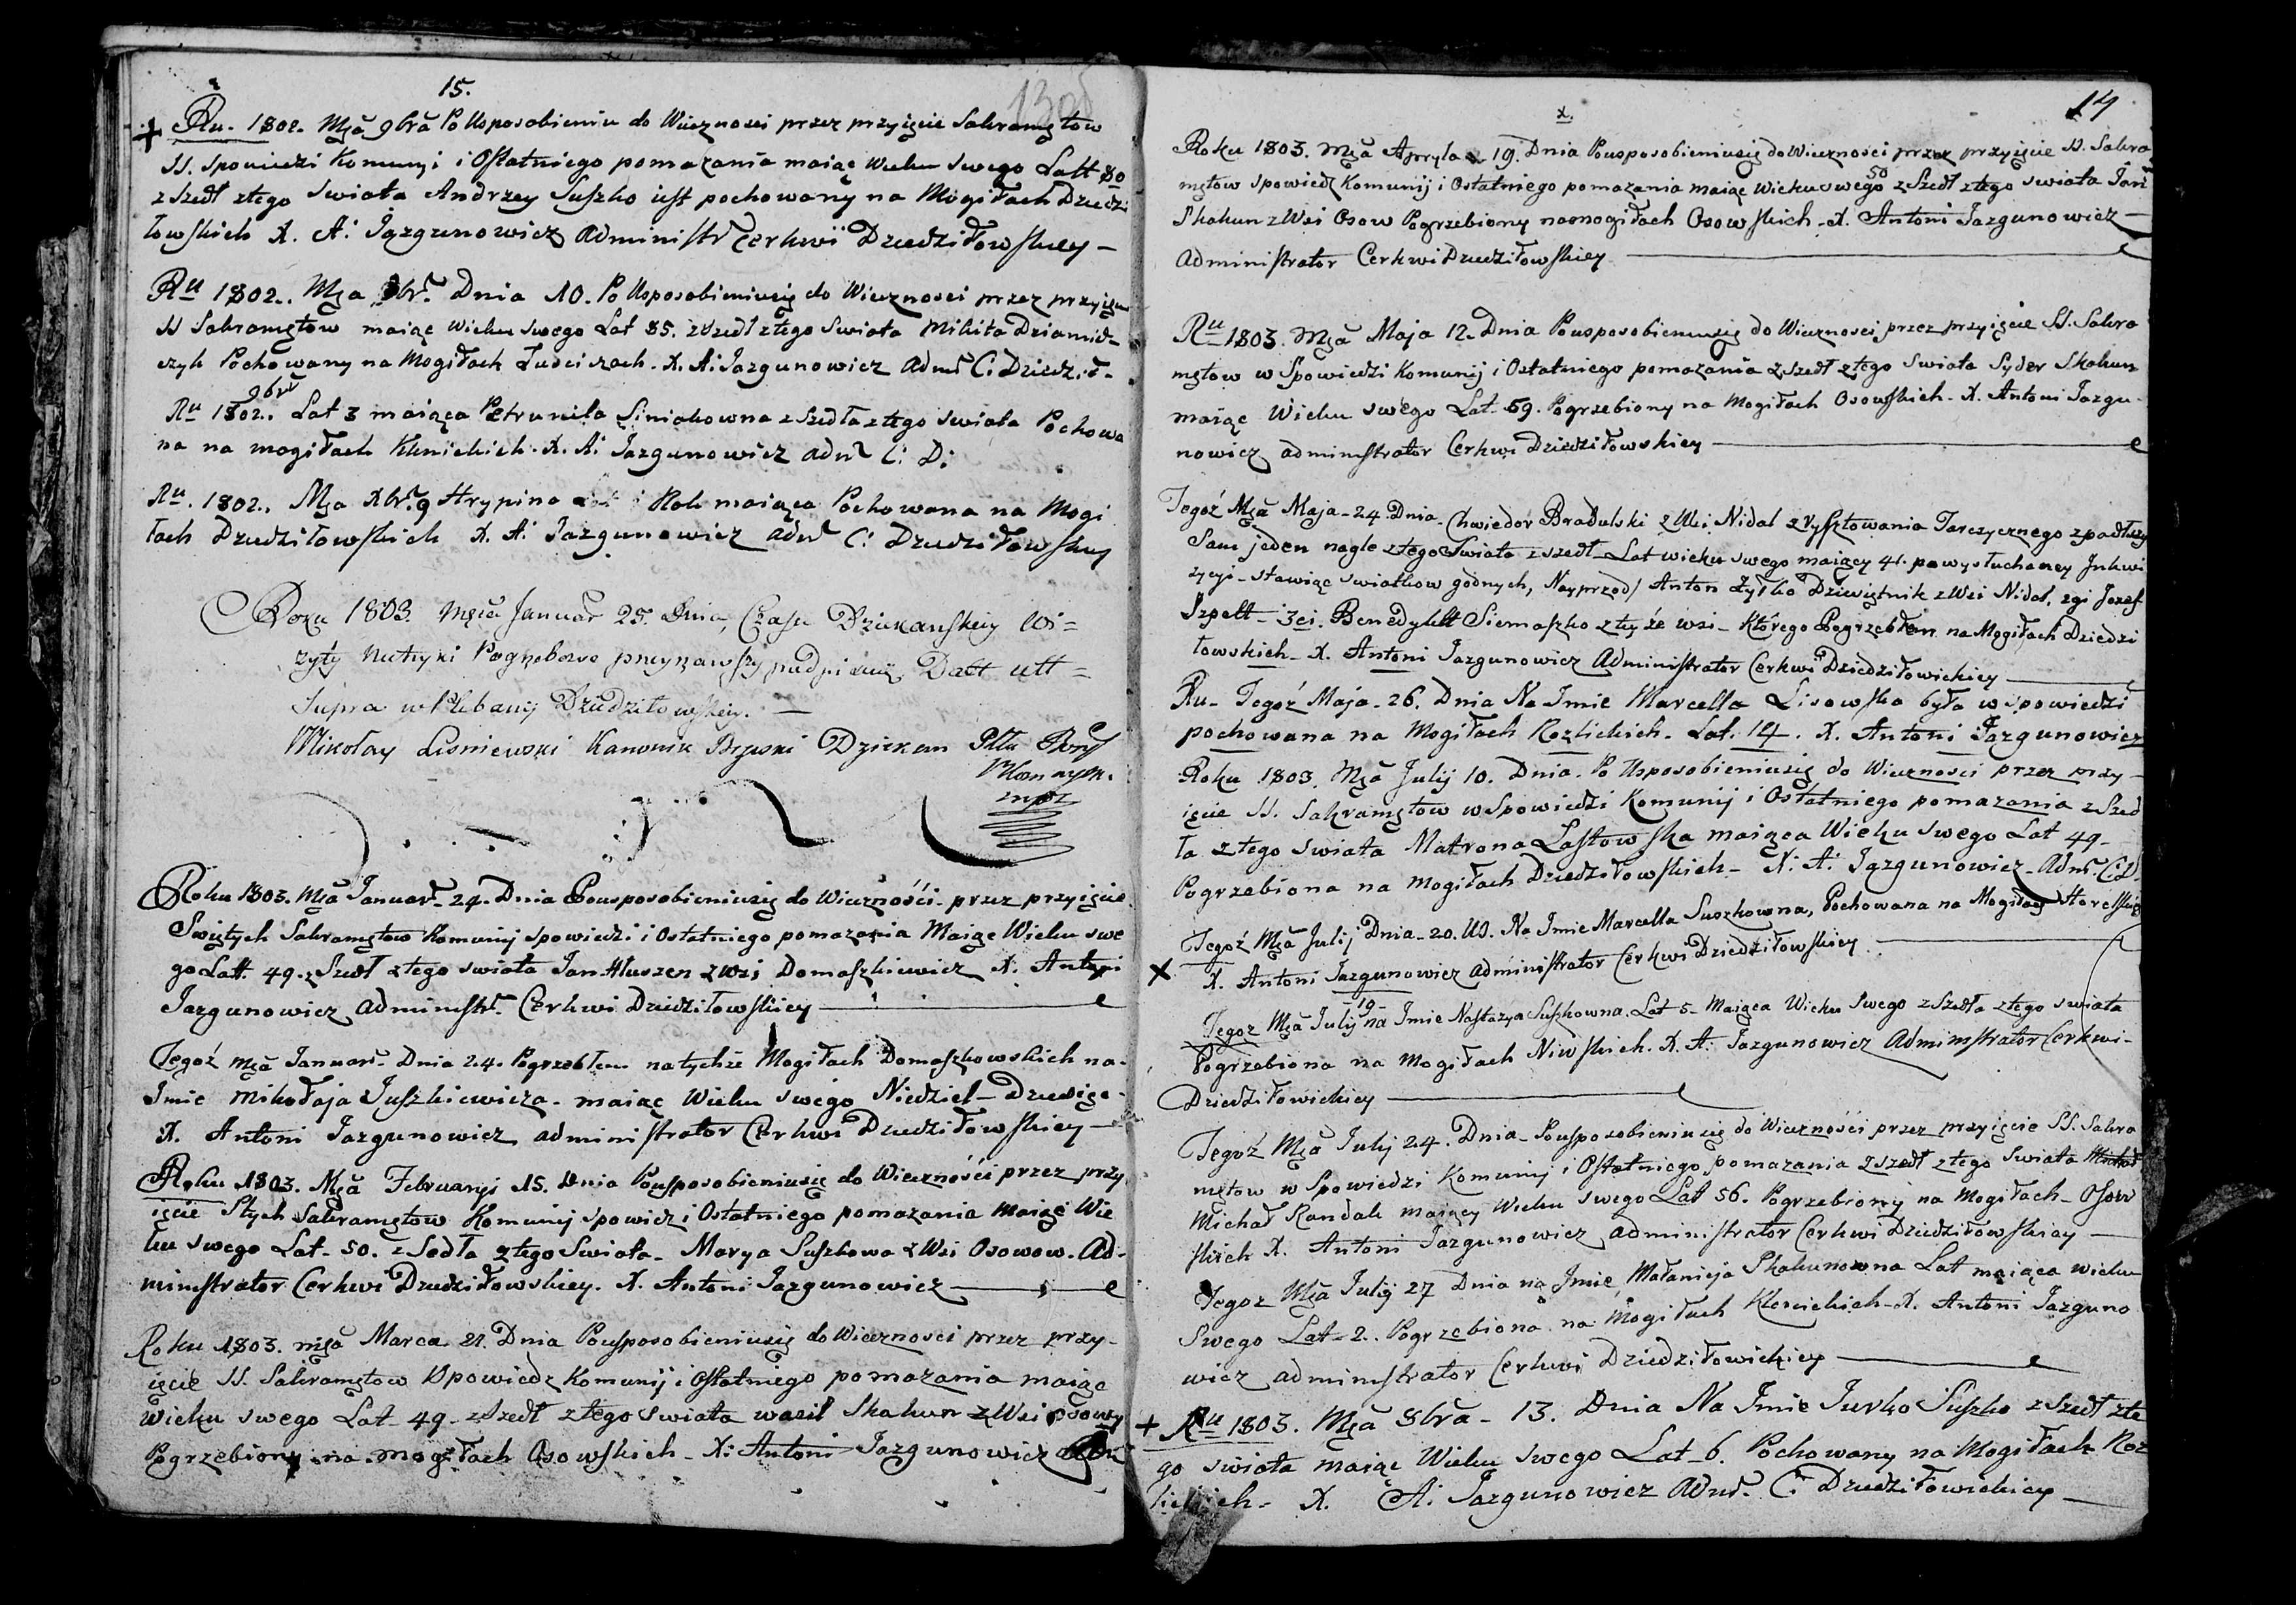 15.
Ru. 1802. Mca 9bra Po Usposobieniu do Wieczności przez przyięcie Sakramętow
SS. Spowiedzi Komunyi i Ostatniego pomazania maiąc wieku swego Latt 80
zszedł ztego Swiata Andrzey Suszko iest pochowany na Mogiłach Dziedzi
łowskich X. A: Jazgunowicz Administr Cerkwii Dziedziłowskiey —
Ru 1802.. Mca Dnia 10. Po Usposobieniusię do Wieczności przez przyięcie
SS Sakramętow maiąc Wieku swego Lat 85. zszedł ztego Swiata Mikita Dziamid-
czyk Pochowany na Mogiłach X. A: Jazgunowicz Adms C: Dziedził-
9bra
Ru 1802.. Lat 3 maiąca Petrunila Siniakowna zszedła ztego Swiata Pochowa
na na mogiłach X. A: Jazgunowicz adm C: D:
Ru. 1802.. Mca Xbra 9 Hrypina Rok maiąca Pochowana na Mogi
łach Dziedziłowskich X. A: Jazgunowicz adm C: Dziedziłowskiey
Roku 1803. Męca Januar 25. Dnia, Czasu Dziekanskiey Wi=
zyty Metryki Pogrzebowe podpisuię Datt utt=
Supra w Plebanij Dziedziłowskiey. —
Mikołay Lisniewski Kanonik Brzeski Dziekan
mpr
Roku 1803. Mca Januar- 24. Dnia Pousposobieniusię do Wieczności przez przyięcie
Swiętych Sakramętow Komunij Spowiedzi i Ostatniego pomazania Maiąc Wieku swe
go Latt. 49. zszedł ztego swiata Jan Hłuszen z wsi Domaszkiewicz X. Antoni
Jazgunowicz Administr- Cerkwi Dziedziłowskiey —
Tegoż Mca Januar- Dnia 24. Pogrzebłem natychże Mogiłach Domaszkowskich na-
Imie Mikołaja Juszkiewicza- maiąc Wieku swego Niedziel- Dziewięc-
X. Antoni Jazgunowicz administrator Cerkwi Dziedziłowskiey —
Roku 1803. Mca Februaryi 15. Dnia Pousposobieniusię do Wieczności przez przy
ięcie Stych Sakramętow Komunij Spowiedz i Ostatniego pomazania maiąc Wie
ku swego Lat- 50. zSedła ztego Swiata- Marya Suszkowa z Wsi Osowow. Ad-
ministrator Cerkwi Dziedziłowskiey. X. Antoni Jazgunowicz —
Roku 1803. mca Marca 21. Dnia Pousposobieniusię do Wieczności przez przy-
ięcie SS. Sakramętow Spowiedz Komunij i Ostatniego pomazania maiąc
Wieku swego Lat- 49- zszedł ztego Swiata wasil Skakun z Wsi Osowy
Pogrzebiony na mogiłach Osowskich- X: Antoni Jazgunowicz Adm
14
x.
Roku 1803. Mca Apryla 19. Dnia Pousposobieniusię do Wieczności przez przyięcie SS. Sakra
mętow Spowiedz Komunij i Ostatniego pomazania maiąc Wieku swego 50 zSzedł ztego swiata Jan
Skakun z Wsi Osow Pogrzebiony na mogiłach Osowskich- X. Antoni Jazgunowicz —
Administrator Cerkwi Dziedziłowskiey —
Ru 1803. Mca Maja 12. Dnia Pousposobieniusię do Wieczności przez przyięcie SS. Sakra
mętow w Spowiedzi Komunij i Ostatniego pomazania zszedł ztego swiata Syder Skakun
maiąc Wieku swego Lat- 59. Pogrzebiony na Mogiłach Osowskich- X. Antoni Jazgu-
nowicz administrator Cerkwi Dziedziłowskiey —
Tegoż Mca Maja- 24. Dnia- Chwiedor Bradulski z Wsi Nidal z rysztowania Tarczycznego zpadłszy
Sam jeden nagle ztego Swiata zszedł Lat wieku swego maiący 41. powysłuchaney Inkwi
zycyi- stawiąc swiatkow godnych, Nayprzod Anton Zyłko Dziewiętnik z Wsi Nidal, 2gi Jozef
Szpett- i 3ci. Benedyktt Siemaszko ztey że wsi- Którego Pogrzebłem na Mogiłach Dziedzi
łowskich- X. Antoni Jazgunowicz Administrator Cerkwi Dziedziłowickiey —
Ru- Tegoż Maja- 26. Dnia Na Imie Marcella Lisowska była w Spowiedzi
pochowana na Mogiłach Kozlickich- Lat. 14. X. Antoni Jazgunowicz
Roku 1803. Mca Julij 10. Dnia. Po Usposobieniusię do Wieczności przez przy-
ięcie SS. Sakramętow w Spowiedzi Komunij i Ostatniego pomazania zSzed
ła ztego swiata Matrona Łastowska maiąca Wieku swego Lat 49-
Pogrzebiona na Mogiłach Dziedziłowskich- X: A: Jazgunowicz- Adms. C: D
Tegoż Mca Julij Dnia- 20. Na Imie Marcella Suszkowna, Pochowana na Mogiłach
X. Antoni Jazgunowicz Administrator Cerkwi Dziedziłowskiey —
Tegoz Mca Julij -19- na Imie Nastazya Suszkowna. Lat 5- Maiąca Wieku Swego zSzedła ztego swiata
Pogrzebiona na Mogiłach Niwskich. X. A: Jazgunowicz Administrator Cerkwi-
Dziedziłowickiey —
Tegoż Mca Julij 24. Dnia- Pousposobieniusię do Wieczności przez przyięcie SS. Sakra
mętow w Spowiedzi Komunij i Ostatniego pomazania zszedł ztego Swiata Michał
Michał Randak maiący Wieku swego Lat 56. Pogrzebiony na Mogiłach- Osow
skich X. Antoni Jazgunowicz administrator Cerkwi Dziedziłowskiey —
Tegoz Mca Julij 27 Dnia na Imie Małanija Skakunowna Lat maiąca wieku
Swego Lat- 2. Pogrzebiona na Mogiłach X. Antoni Jazguno
wicz administrator Cerkwi Dziedziłowickiey —
+ Ru 1803. Mca 8bra- 13. Dnia Na Imie Jurko Suszko zszedł zte
go swiata maiąc Wieku swego Lat- 6. Pochowany na Mogiłach Koz
lickich- X. A: Jazgunowicz Adms. C: Dziedziłowickiey —